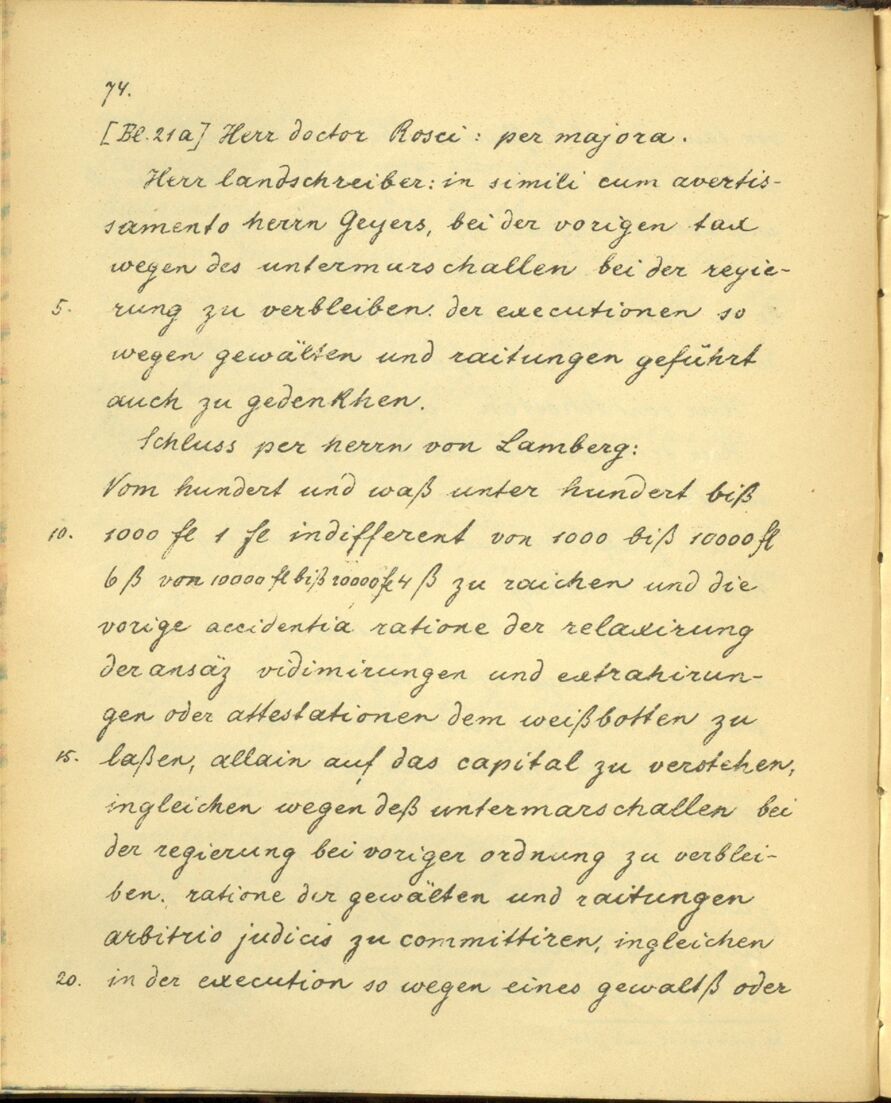 74.
[Bl. 21a] Herr doctor Rosci: per majora.
Herr landschreiber: in simili cum avertis-
samento herrn Geyers, bei der vorigen tax
wegen des untermurschallen bei der regie-
5. rung zu verbleiben. der executionen so
wegen gewälten und raitungen geführt
auch zu gedenkhen.
Schluss per herrn von Lamberg:
Vom hundert und waß unter hundert biß
10. 1000 fl 1 fl indifferent von 1000 biß 10000 fl
6 ß von 10000 fl biß 20000 fl 4 ß zu raichen und die
vorige accidentia ratione der relaxirung
der ansäz vidimirungen und extrahirun-
gen oder attestationen dem weißbotten zu
15. laßen, allain auf das capital zu verstehen,
ingleichen wegen deß untermarschallen bei
der regierung bei voriger ordnung zu verblei-
ben. ratione der gewälten und raitungen
arbitrio judicis zu committiren, ingleichen
20. in der execution so wegen eines gewaltß oder